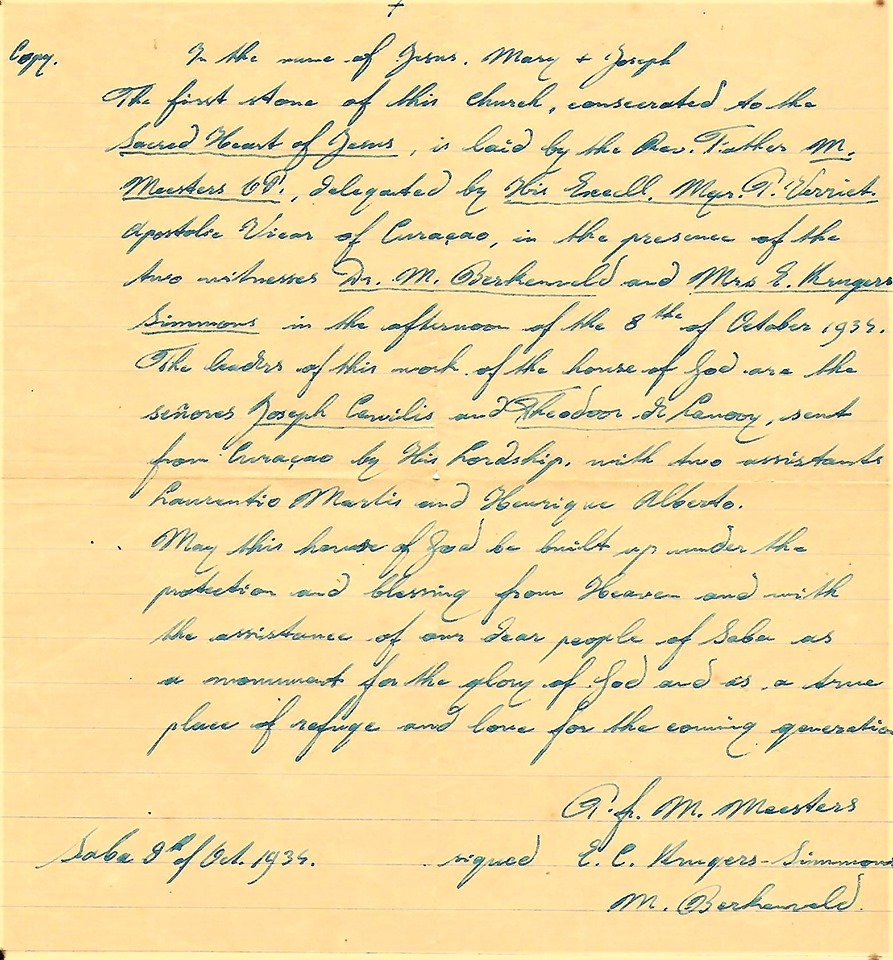 +
Copy. In the name of Jesus. Mary + Joseph
The first stone of this church, consecrated to the
Sacred Heart of Jesus, is laid by the Rev. Father M.
Meesters OP., delegated by His Excell. Mgr. P. Verriet.
Apostolic Vicar of Curaçao, in the presence of the
two witnesses Dr. M. Berkenveld and Mrs E. Krugers
Simmons in the afternoon of the 8the of October 1934.
The leaders of this work of the house of God are the
señores Joseph and Theodoor de Lanooy, sent
from Curaçao by His Lordship, with two assistants
Laurentio Martis and Henrique Alberto.
May this house of God be built up under the
protection and blessing from Heaven and with
the assistance of our dear people of Saba as
a monument for the glory of God and as a true
place of refuge and love for the coming generation
P. fr. M. Meesters
Saba 8th of Oct. 1934. signed E. C. Krugers-Simmons
M. Berkenveld.